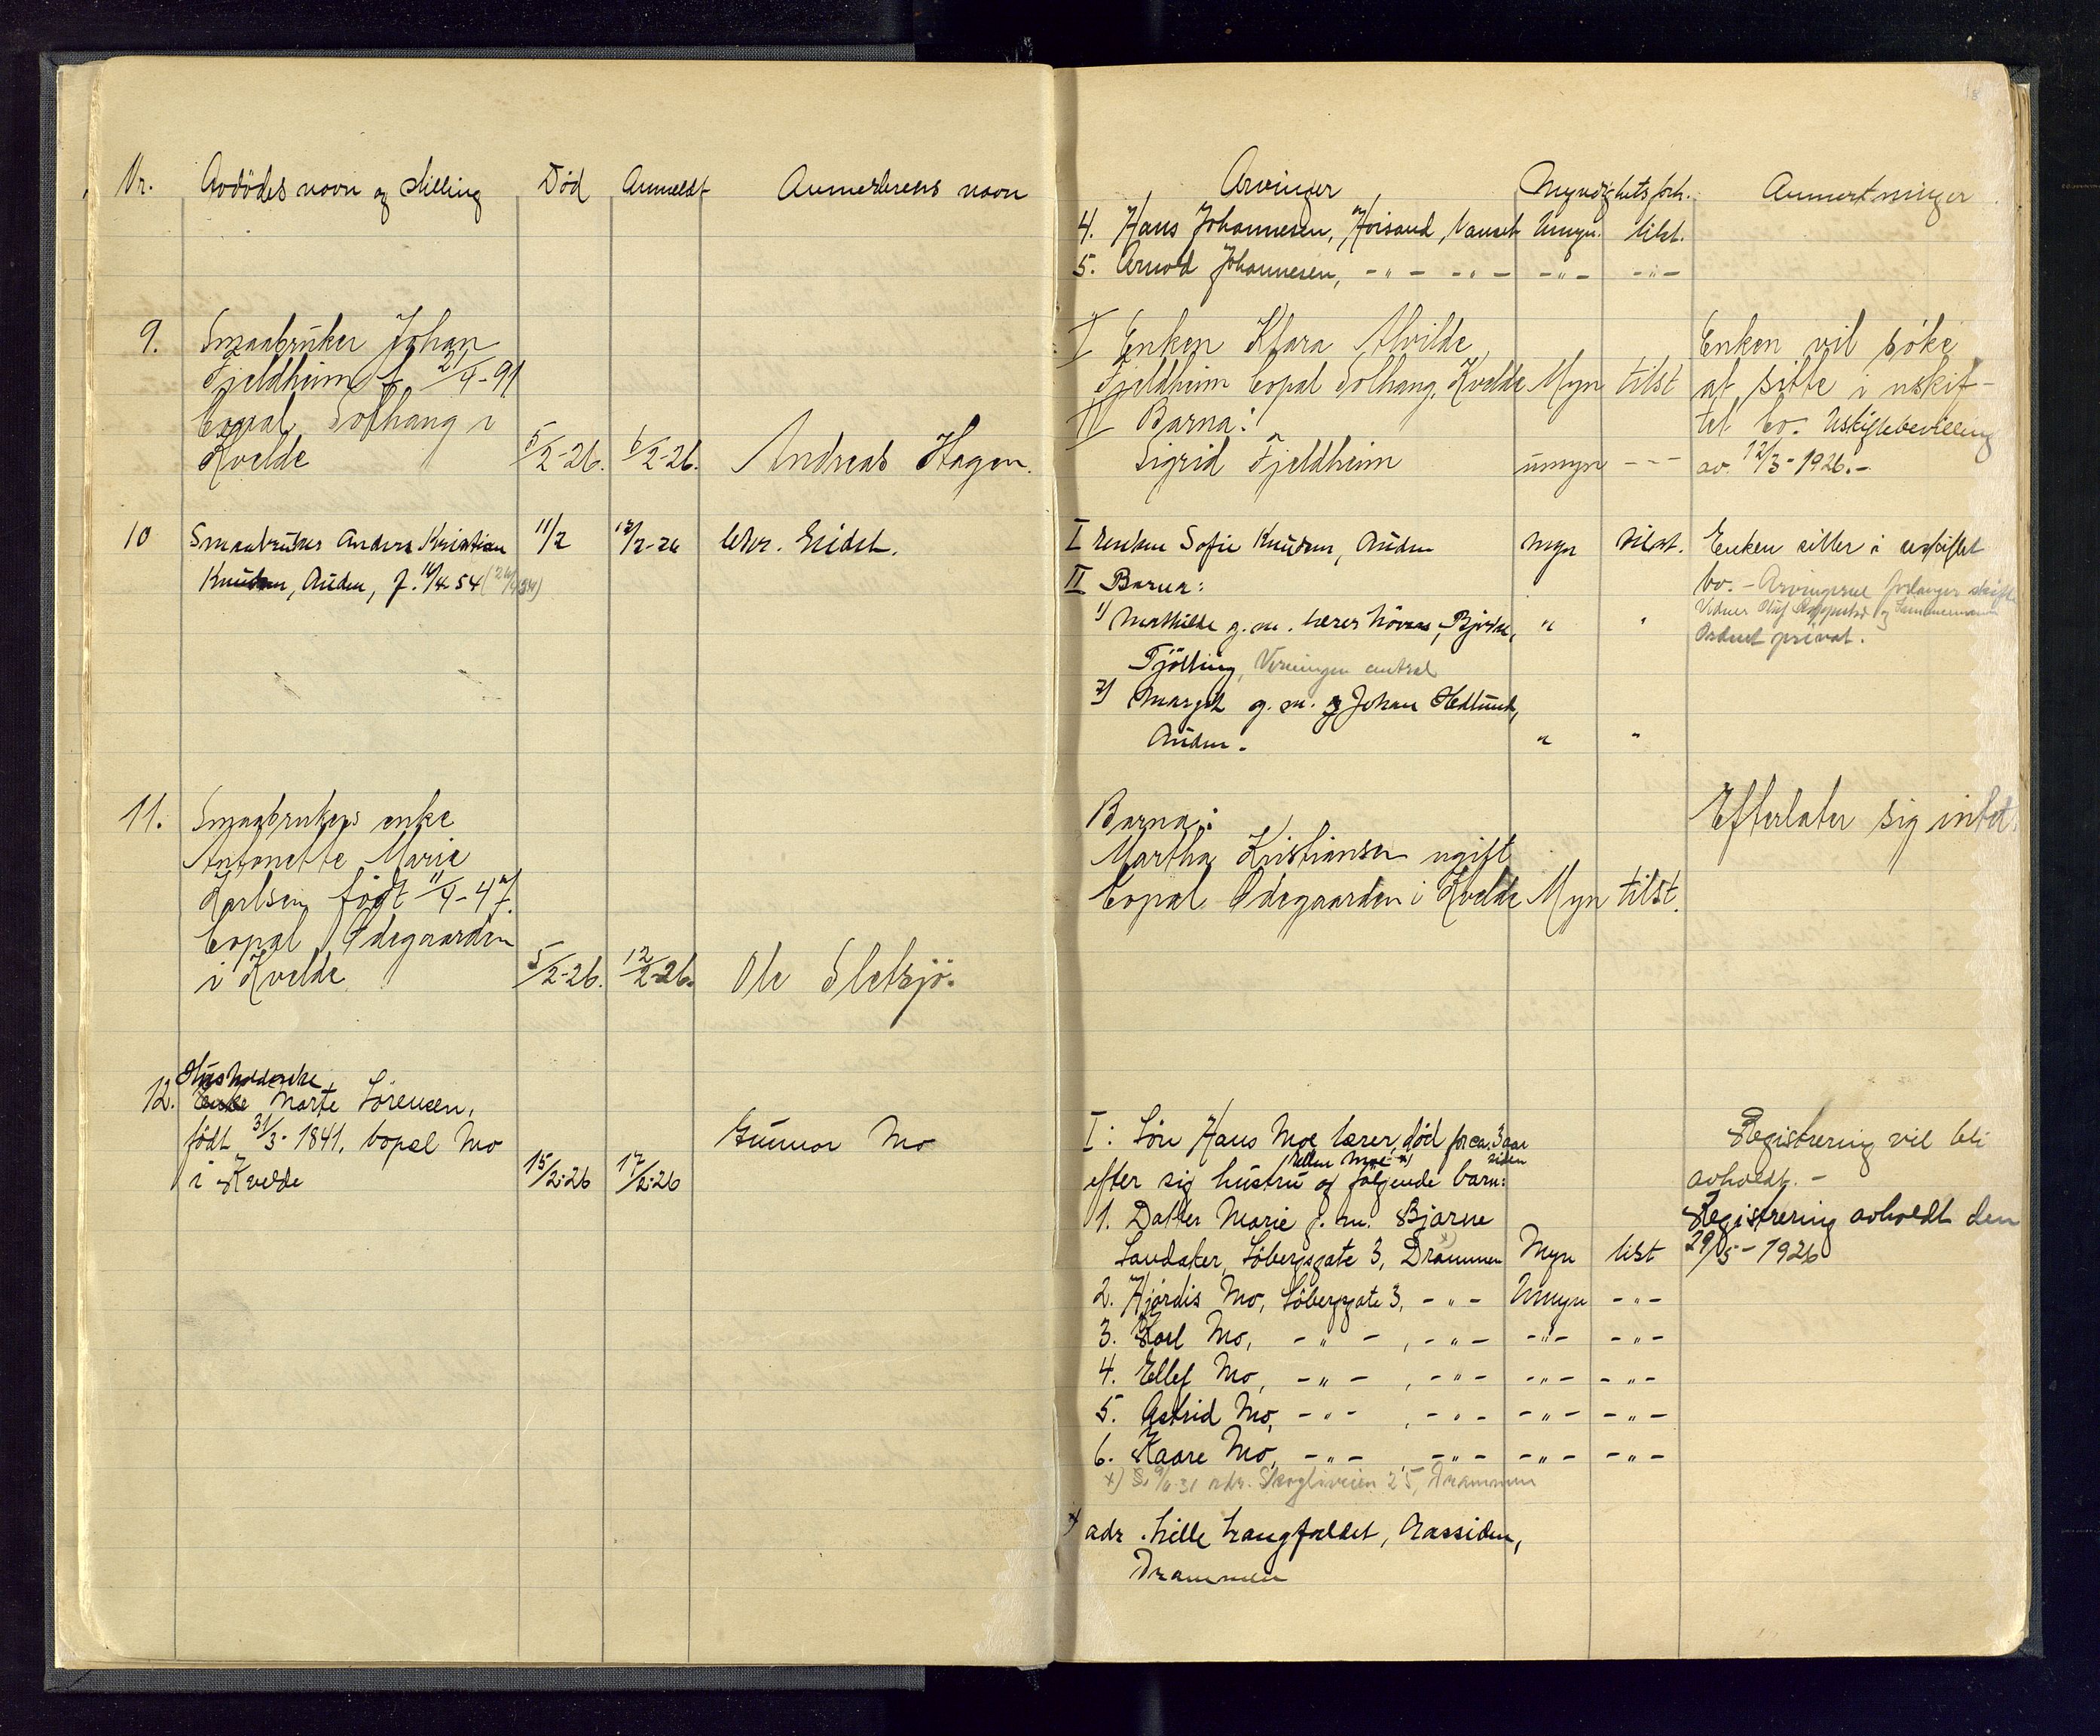 Nr. Avdödes navn og stilling Död Anmeldt Anmelderens navn
9. Smaabruker Johan
Fjeldheim f. 21/4-91
bopal Solhaug i
Kvelde 5/2-26. 6/2-26. Andreas Hagen.
10 Smaabruker Anders Kristian 11/2 12/2-26 Chr. Eidet.
Knudsen, Auden, f. 16/4 54
11. Smaabrukers enke
Antonette Marie
Karlsen født 11/4-47.
bopal Ødegaarden
i Kvelde 5/2-26. 12/2-26. Ole Sletsjø.
Husholderske
12. Enke Marte Sörensen,
født 31/3-1841, bopæl Mo Gunnar Mo
i Kvelde 15/2-26 17/2-26
Arvinger Myndighetsforh. Anmerkninger
4. Hans Johannesen, Horsand, Nanset Umyn. tilst.
5. Arnold Johannesen, -"- -"- -"- -"-
I Enken Klara Alvilde Enken vil søke
Fjeldheim bopal Solhaug, Kvelde Myn tilst at sitte i uskif-
II Barna: tet bo. Uskiftebevilling
Sigrid Fjeldheim umyn --- av 12/3-1926.-
I Enken Sofie Knudsen, Auden myn tilst. Enken sitter i uskiftet
II Barna: bo. - Arvingerne forlanger skifte
1) Mathilde g.m. lærer , Bjerke, " " Vidner Oluf og
Tjölling, Ordnet privat.
2) Margit g.m. Johan Hedlund,
Auden. " "
Barna: Efterlater sig intet.
Martha Kristiansen ugift
bopal Ødegaarden i Kvelde Myn tilst.
I: Sön Hans Moe lærer, död for ca. 3 aar Registrering vil bli
siden
efter sig hustru og følgende barn: avholdt. -
1. Datter Marie g.m. Bjarne Registrering avholdt den
Sandaker, Söbergsgate 3, Drammen Myn tilst 29/5-1926
2. Hjördis Mo, Söbergsgate 3, -"- Umyn -"-
3. Karl Mo, -"- , -"- -"- -"-
4. Ellef Mo, -"- , -"- -"- -"-
5. Astrid Mo, -"- , -"- -"- -"-
6. Kaare Mo, -"- , -"- -"- -"-
x) 9/6-31 adr. Skogliveien 25, Drammen
x) adr. Lille Langfaldet, Aassiden,
Drammen